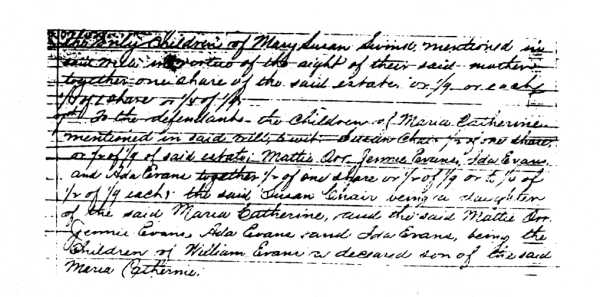 the only Children of Mary Susan Swind mentioned in
said will in vertue of the right of their said mother
together one share of the said estate or 1/9 or each
1/8 of share or 1/8 of 1/9
To the defendants the Children of Maria Catherine
mentioned in said will, to wit Susan Chair 1/2 of one share,
or 1/2 of 1/9 of said estate. Mattie Orr, Jennie Evans, Ida Evans
and Ada Evans together 1/2 of one share or 1/2 of 1/9 or to 1/4 of
1/2 of 1/9 each; the said Susan Chair being a daughter
of the said Maria Catherine, and the said Mattie Orr
Jennie Evans, Ada Evans and Ida Evans, being the
Children of William Evans a deceased son of the said
Maria Catherine.